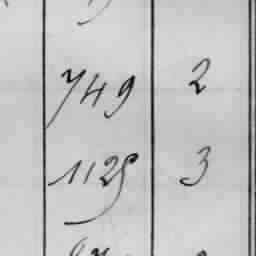 749 2
1125 3